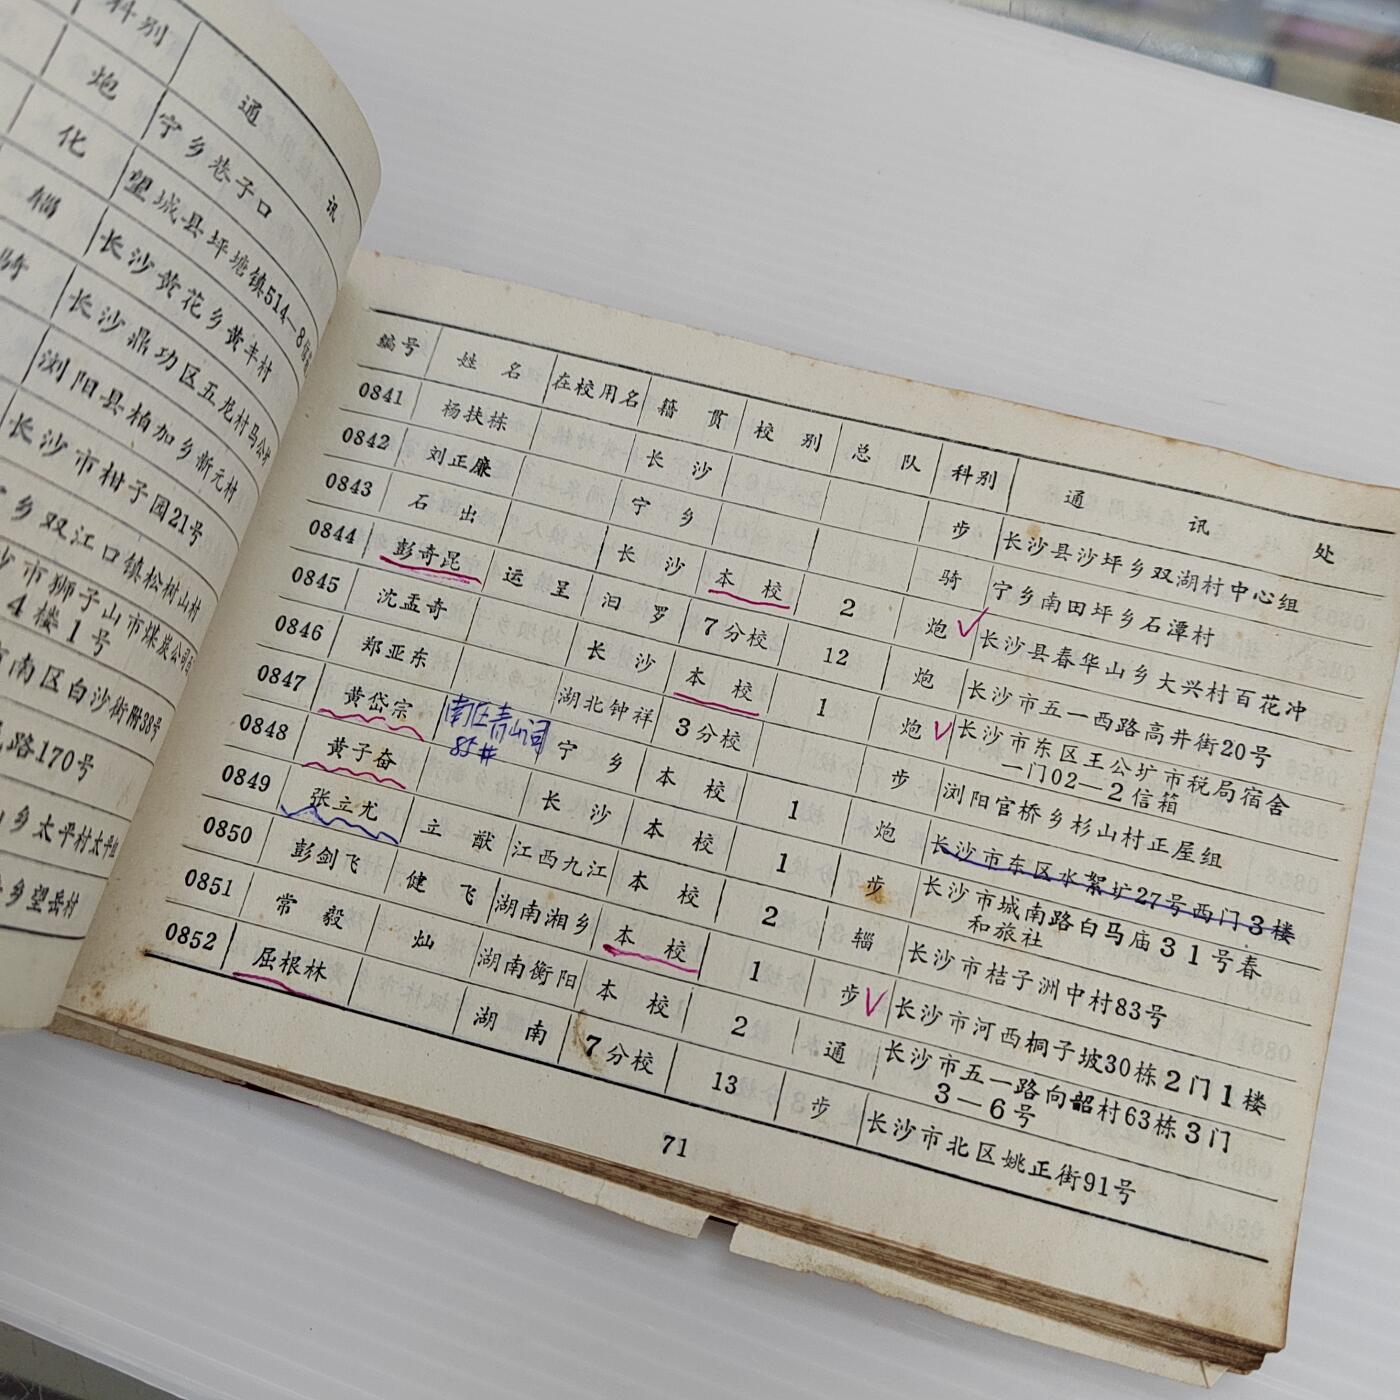 科别 通 讯
炮 宁乡巷子口
化 望城县坪塘镇514—8信
辎 长沙黄花乡黄丰村
骑 长沙鼎功区五龙村马公
浏阳县柏加乡新元村
长沙市柑子园21号
乡双江口镇松树山村
沙市狮子山市煤炭公司
4楼1号
南区白沙街附38号
路170号
乡太平村太平组
乡望岳村
编号 姓名 在校用名 籍贯 校别 总队 科别 通讯处
0841 杨扶栋 长沙 步 长沙县沙坪乡双湖村中心组
0842 刘正廉 宁乡 骑 宁乡南田坪乡石潭村
0843 石出 长沙 本校 2 炮 长沙县春华山乡大兴村百花冲
0844 彭奇昆 运呈 汨罗 7分校 12 炮 长沙市五一西路高井街20号
0845 沈孟奇 长沙 本校 1 炮 长沙市东区王公圹市税局宿舍
一门02—2信箱
0846 郑亚东 湖北钟祥 3分校 步 浏阳官桥乡杉山村正屋组
0847 黄岱宗 宁乡 本校 1 炮 长沙市东区水絮圹27号西门3楼
0848 黄子奋 长沙 本校 1 步 长沙市城南路白马庙31号春
和旅社
0849 张立尤 立猷 江西九江 本校 2 辎 长沙市桔子洲中村83号
0850 彭剑飞 健飞 湖南湘乡 本校 1 步 长沙市河西桐子坡30栋2门1楼
0851 常毅 灿 湖南衡阳 本校 2 通 长沙市五一路向韶村63栋3门
3—6号
0852 屈根林 湖南 7分校 13 步 长沙市北区姚正街91号
71